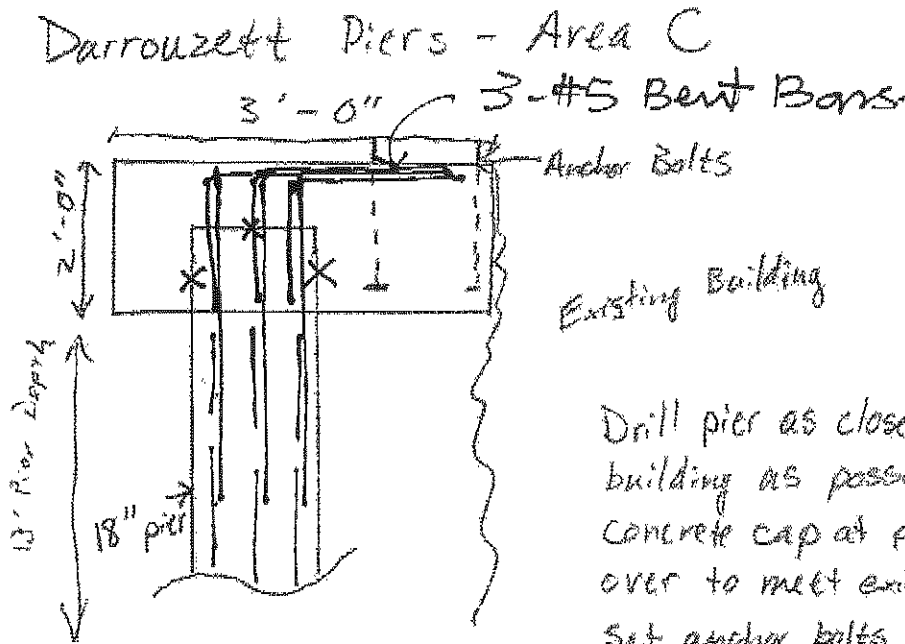 Darrouzett Piers - Area C
3'-0"
3-#5 Bent Bars
Anchor Bolts
2'-0"
Existing Building
Pier Depth
18" pier
Drill pier as close
building as
Concrete cap at
over to meet
set anchor bolts